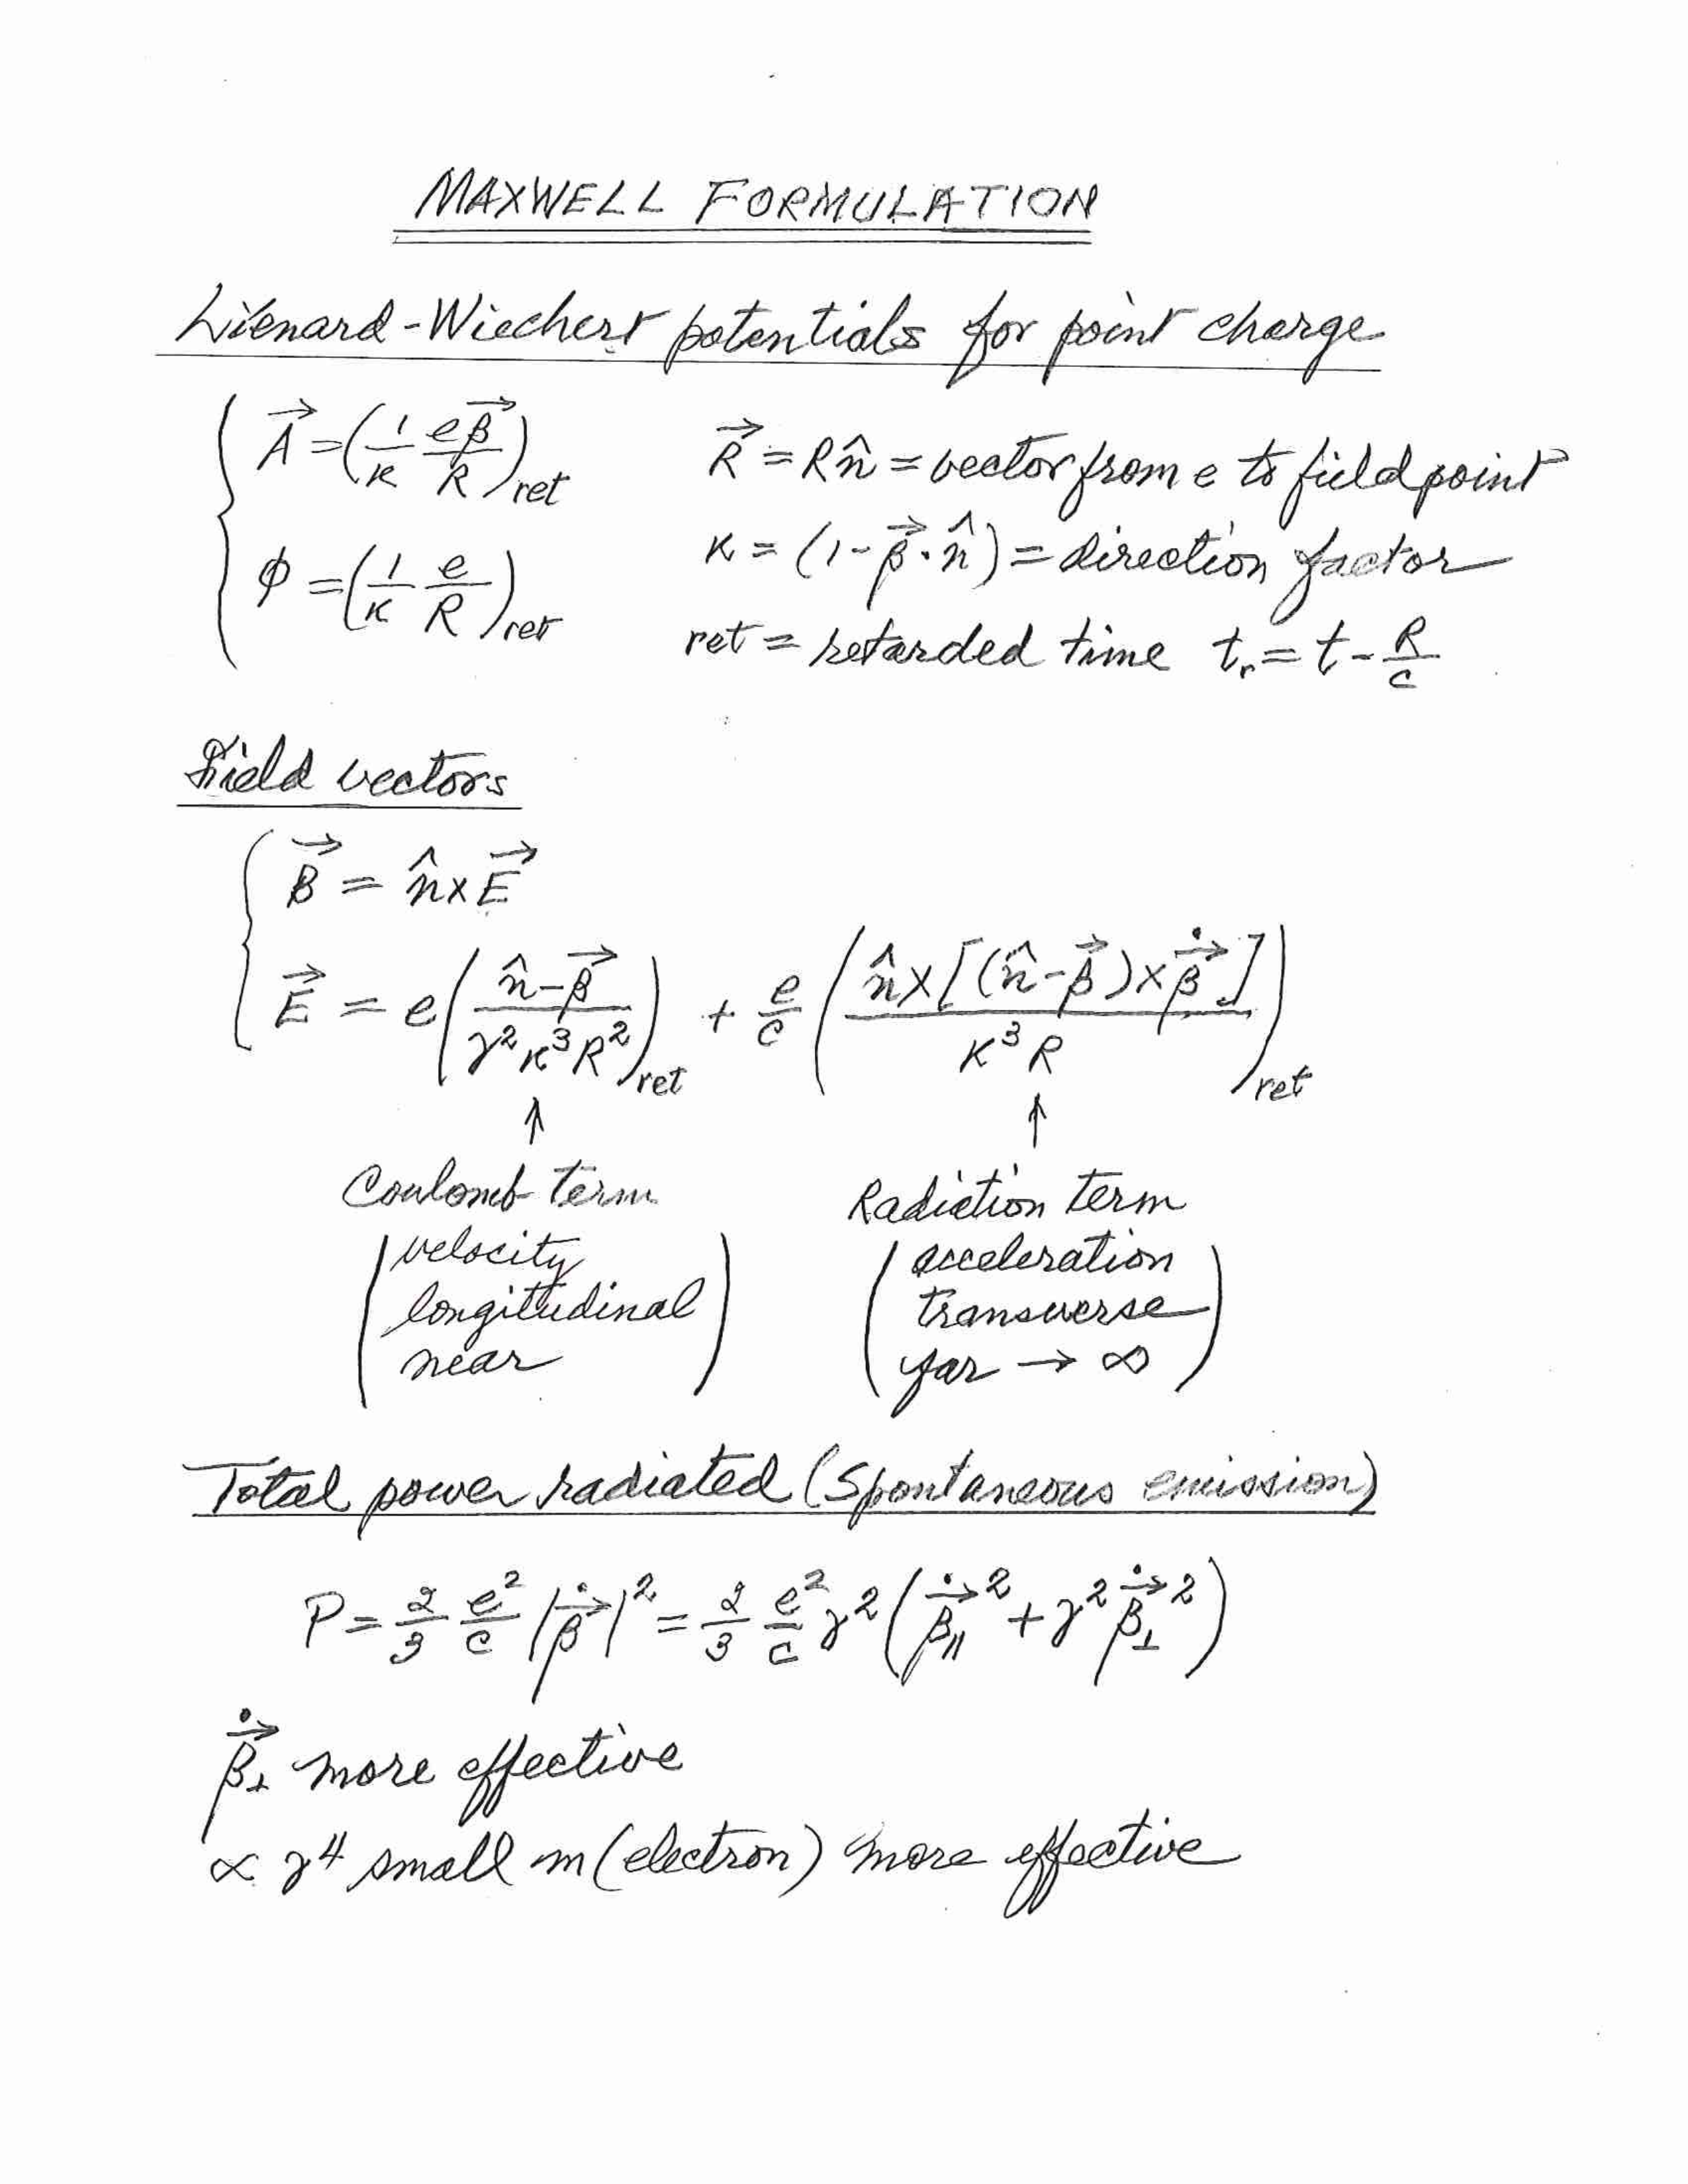 MAXWELL FORMULATION
Liënard-Wiechert potentials for point charge
A⃗ = (1/κ eβ⃗/R)ret    R⃗ = Rn̂ = vector from e to field point
ϕ = (1/κ e/R)ret    κ = (1-β⃗·n̂) = direction factor
ret = retarded time tᵣ = t - R/c
Field vectors
B⃗ = n̂ x E⃗
E⃗ = e((n̂-β⃗)/(γ²κ³R²))ret + e/c (n̂x[(n̂-β⃗)xβ⃗̇]/(κ³R))ret
↑    ↑
Coulomb term    Radiation term
(velocity    (acceleration
longitudinal    transverse
near)    far → ∞)
Total power radiated (Spontaneous emission)
P = 2/3 e²/c |β⃗̇|² = 2/3 e²/c γ²(β⃗̇∥² + γ²β⃗̇⊥²)
β⃗̇⊥ more effective
∝ γ⁴ small m (electron) more effective